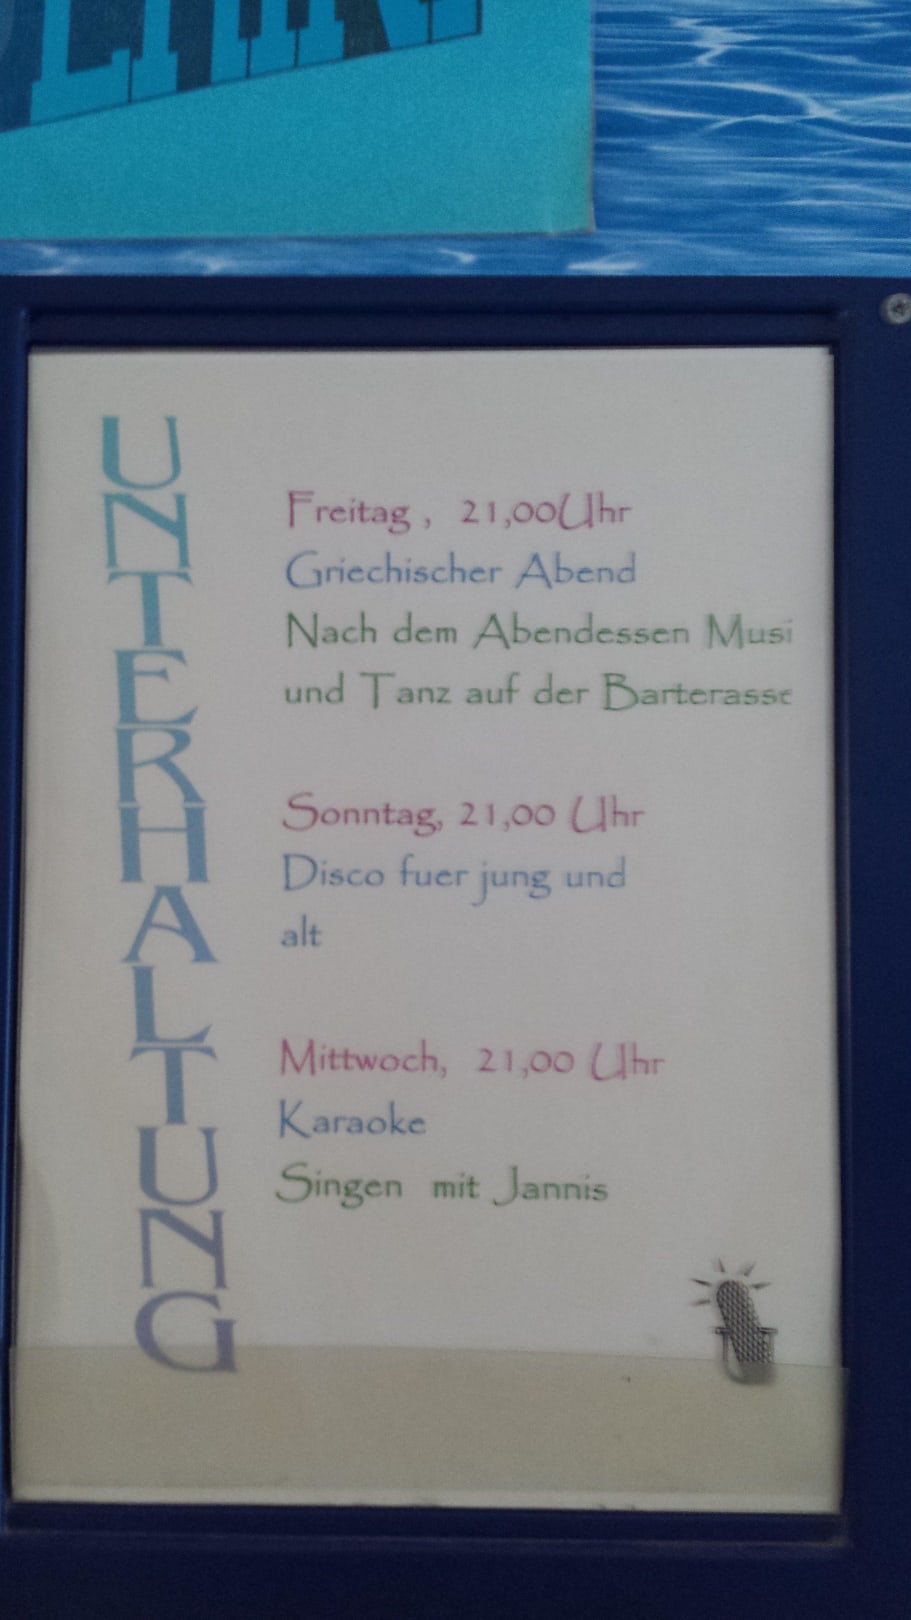 UNTERHALTUNG
Freitag, 21,00Uhr
Griechischer Abend
Nach dem Abendessen Musi
und Tanz auf der Barterasse
Sonntag, 21,00 Uhr
Disco fuer jung und
alt
Mittwoch, 21,00 Uhr
Karaoke
Singen mit Jannis